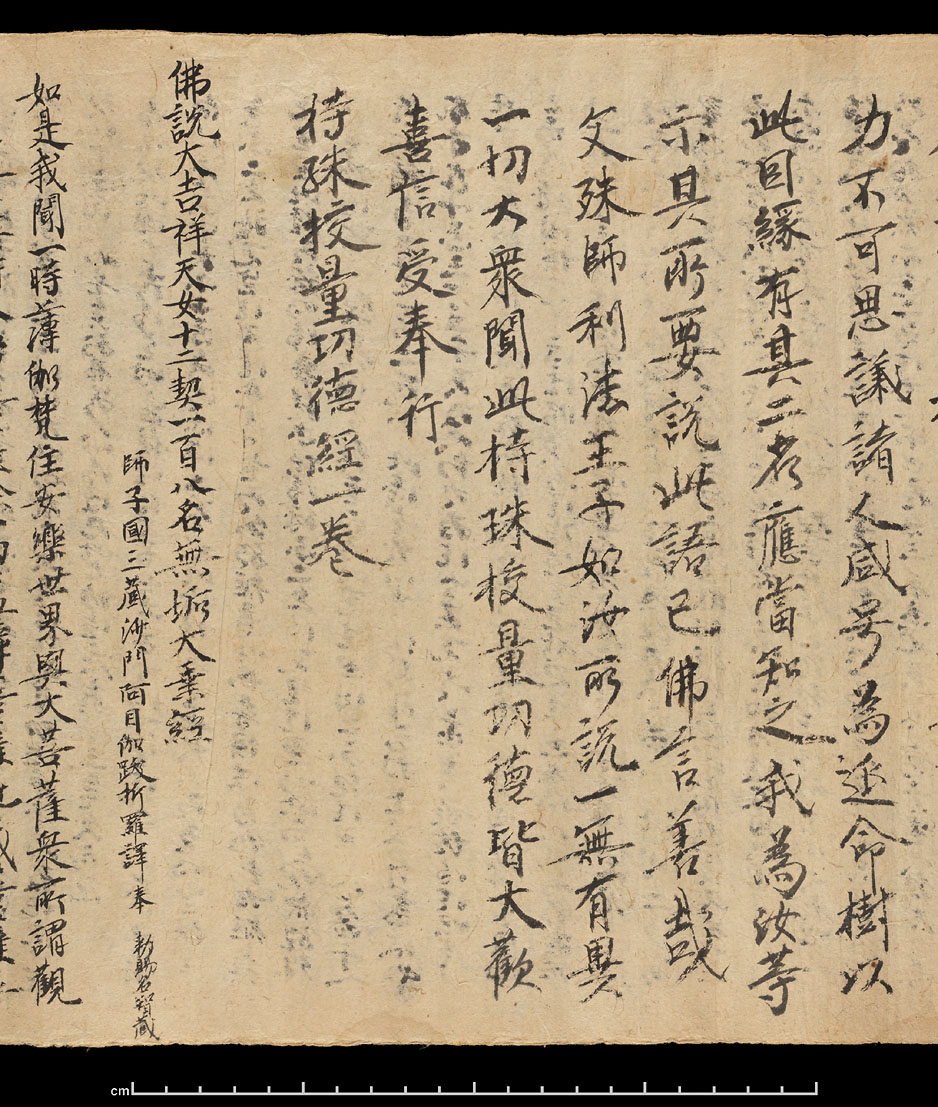 力不可思議諸人咸号為延命樹以
此因緣有其二者應當知之我為汝等
示其所要說此語已佛言善哉
文殊師利法王子如汝所說一無有異
一切大衆聞此持珠挍量功德皆大歡
喜信受奉行
持珠挍量功德經一卷
佛說大吉祥天女十二契一百八名無垢大乗經
師子國三藏沙門阿目伽跋折羅譯奉 勅賜名智藏
如是我聞一時薄伽梵住安樂世界與大菩薩衆所謂觀